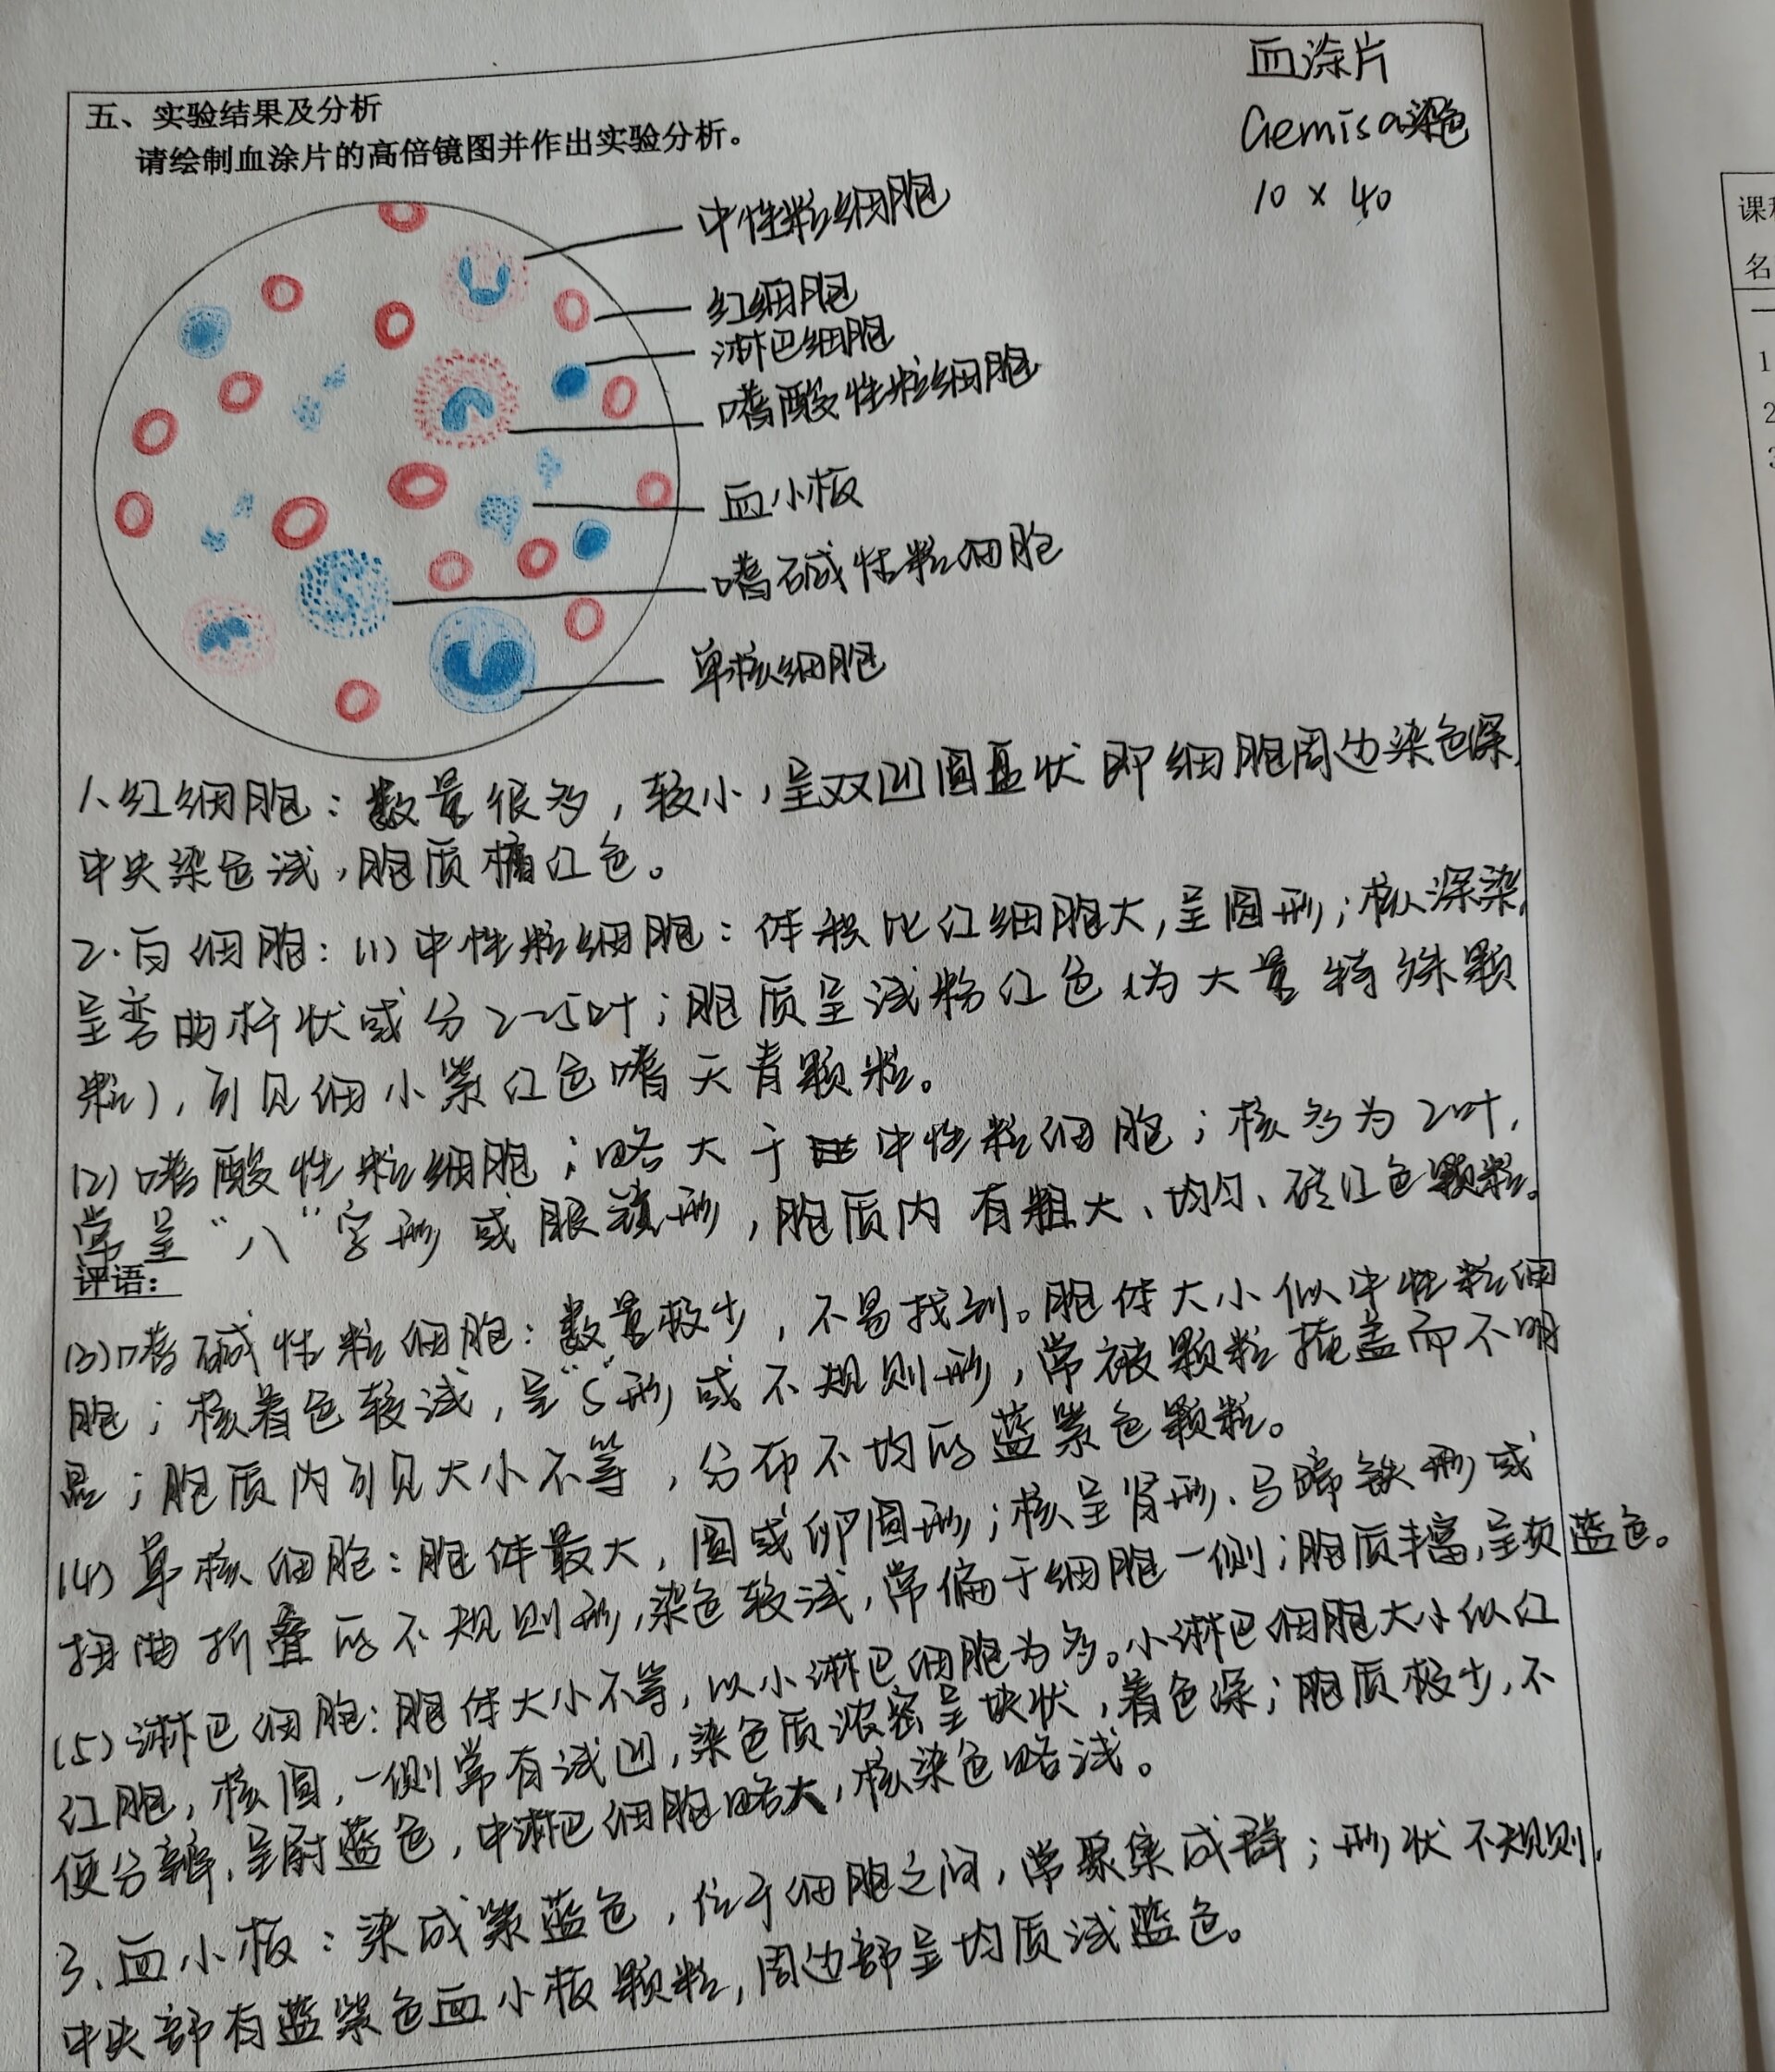 五、实验结果及分析
请绘制血涂片的高倍镜图并作出实验分析。
血涂片
Gemisa染色
10 × 40
中性粒细胞
红细胞
淋巴细胞
嗜酸性粒细胞
血小板
嗜碱性粒细胞
单核细胞
1、红细胞：数量很多，较小，呈双凹圆盘状即细胞周边染色深，
中央染色浅，胞质橘红色。
2.白细胞：(1)中性粒细胞：体积比红细胞大，呈圆形；核深染，
呈弯曲杆状或分2-5叶；胞质呈浅粉红色(为大量特殊颗
粒)，可见细小紫红色嗜天青颗粒。
(2)嗜酸性粒细胞；略大于中性粒细胞；核多为2叶，
常呈“八”字形或眼镜形，胞质内有粗大、均匀、砖红色颗粒。
评语：
(3)嗜碱性粒细胞：数量极少，不易找到。胞体大小似中性粒细
胞；核着色较浅，呈“S”形或不规则形，常被颗粒掩盖而不明
显；胞质内可见大小不等，分布不均的蓝紫色颗粒。
(4)单核细胞：胞体最大，圆或卵圆形；核呈肾形、马蹄铁形或
扭曲折叠的不规则形，染色较浅，常偏于细胞一侧；胞质丰富，呈灰蓝色。
(5)淋巴细胞：胞体大小不等，以小淋巴细胞为多。小淋巴细胞大小似红
红胞，核圆，一侧常有浅凹，染色质浓密呈块状，着色深；胞质极少，不
便分辨，呈蔚蓝色，中淋巴细胞略大，核染色略浅。
3、血小板：染成紫蓝色，位于细胞之间，常聚集成群；形状不规则，
中央部有蓝紫色血小板颗粒，周边部呈均质浅蓝色。
课
名
1
2